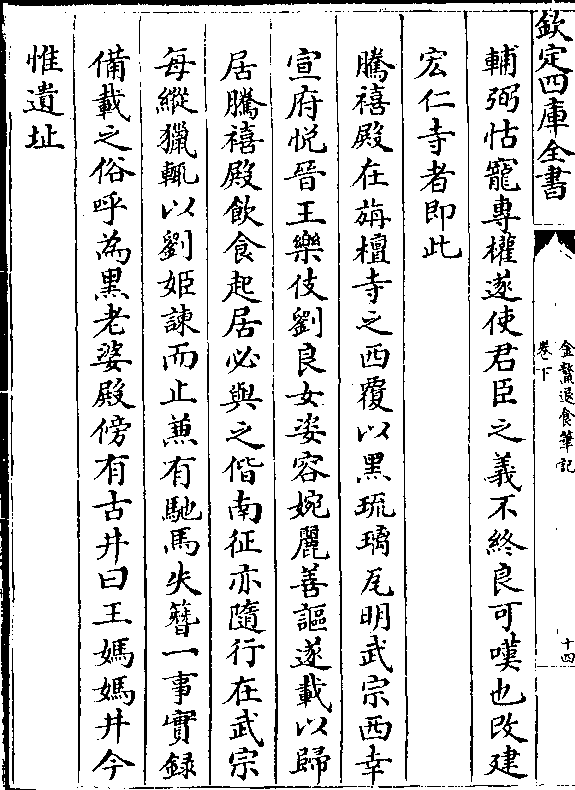 欽定四庫全書
金鰲退食筆記
卷下
十四
輔弼怙寵專權遂使君臣之義不終良可嘆也改建
宏仁寺者即此
騰禧殿在旃檀寺之西覆以黑琉璃瓦明武宗西幸
宣府悅晉王樂伎劉良女姿容婉麗善謳遂載以歸
居騰禧殿飲食起居必與之偕南征亦隨行在武宗
每縱獵輒以劉姬諫而止蓋有馳馬失簪一事實録
備載之俗呼為黑老婆殿傍有古井曰王媽媽井今
惟遺址